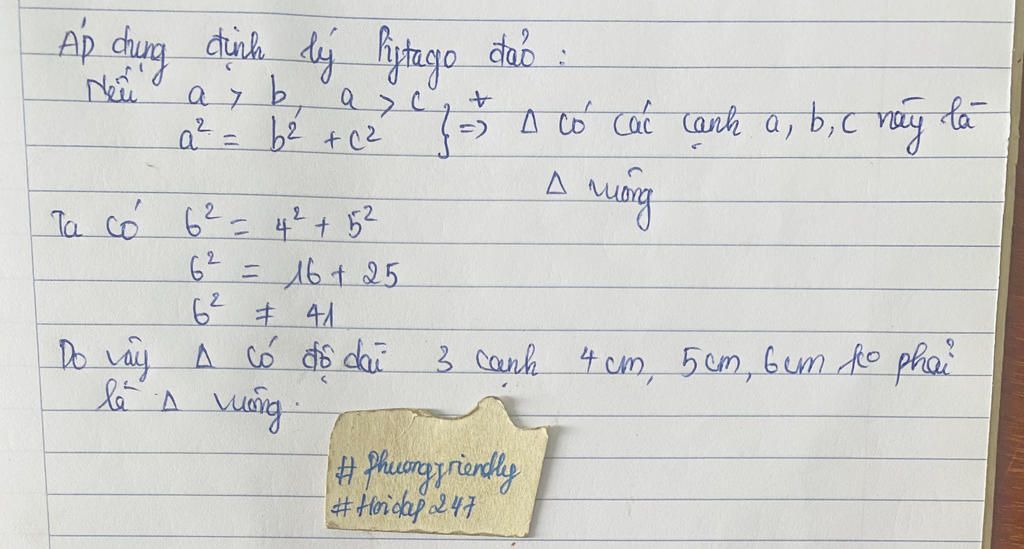 Áp dụng định lý Pytago đảo :
Nếu a > b, a > c
a² = b² + c² } => Δ có các cạnh a, b, c này là
Δ vuông
Ta có 6² = 4² + 5²
6² = 16 + 25
6² ≠ 41
Do vậy Δ có độ dài 3 cạnh 4 cm, 5 cm, 6 cm ko phải
là Δ vuông.
# phuongfriendly
# Hoidap247